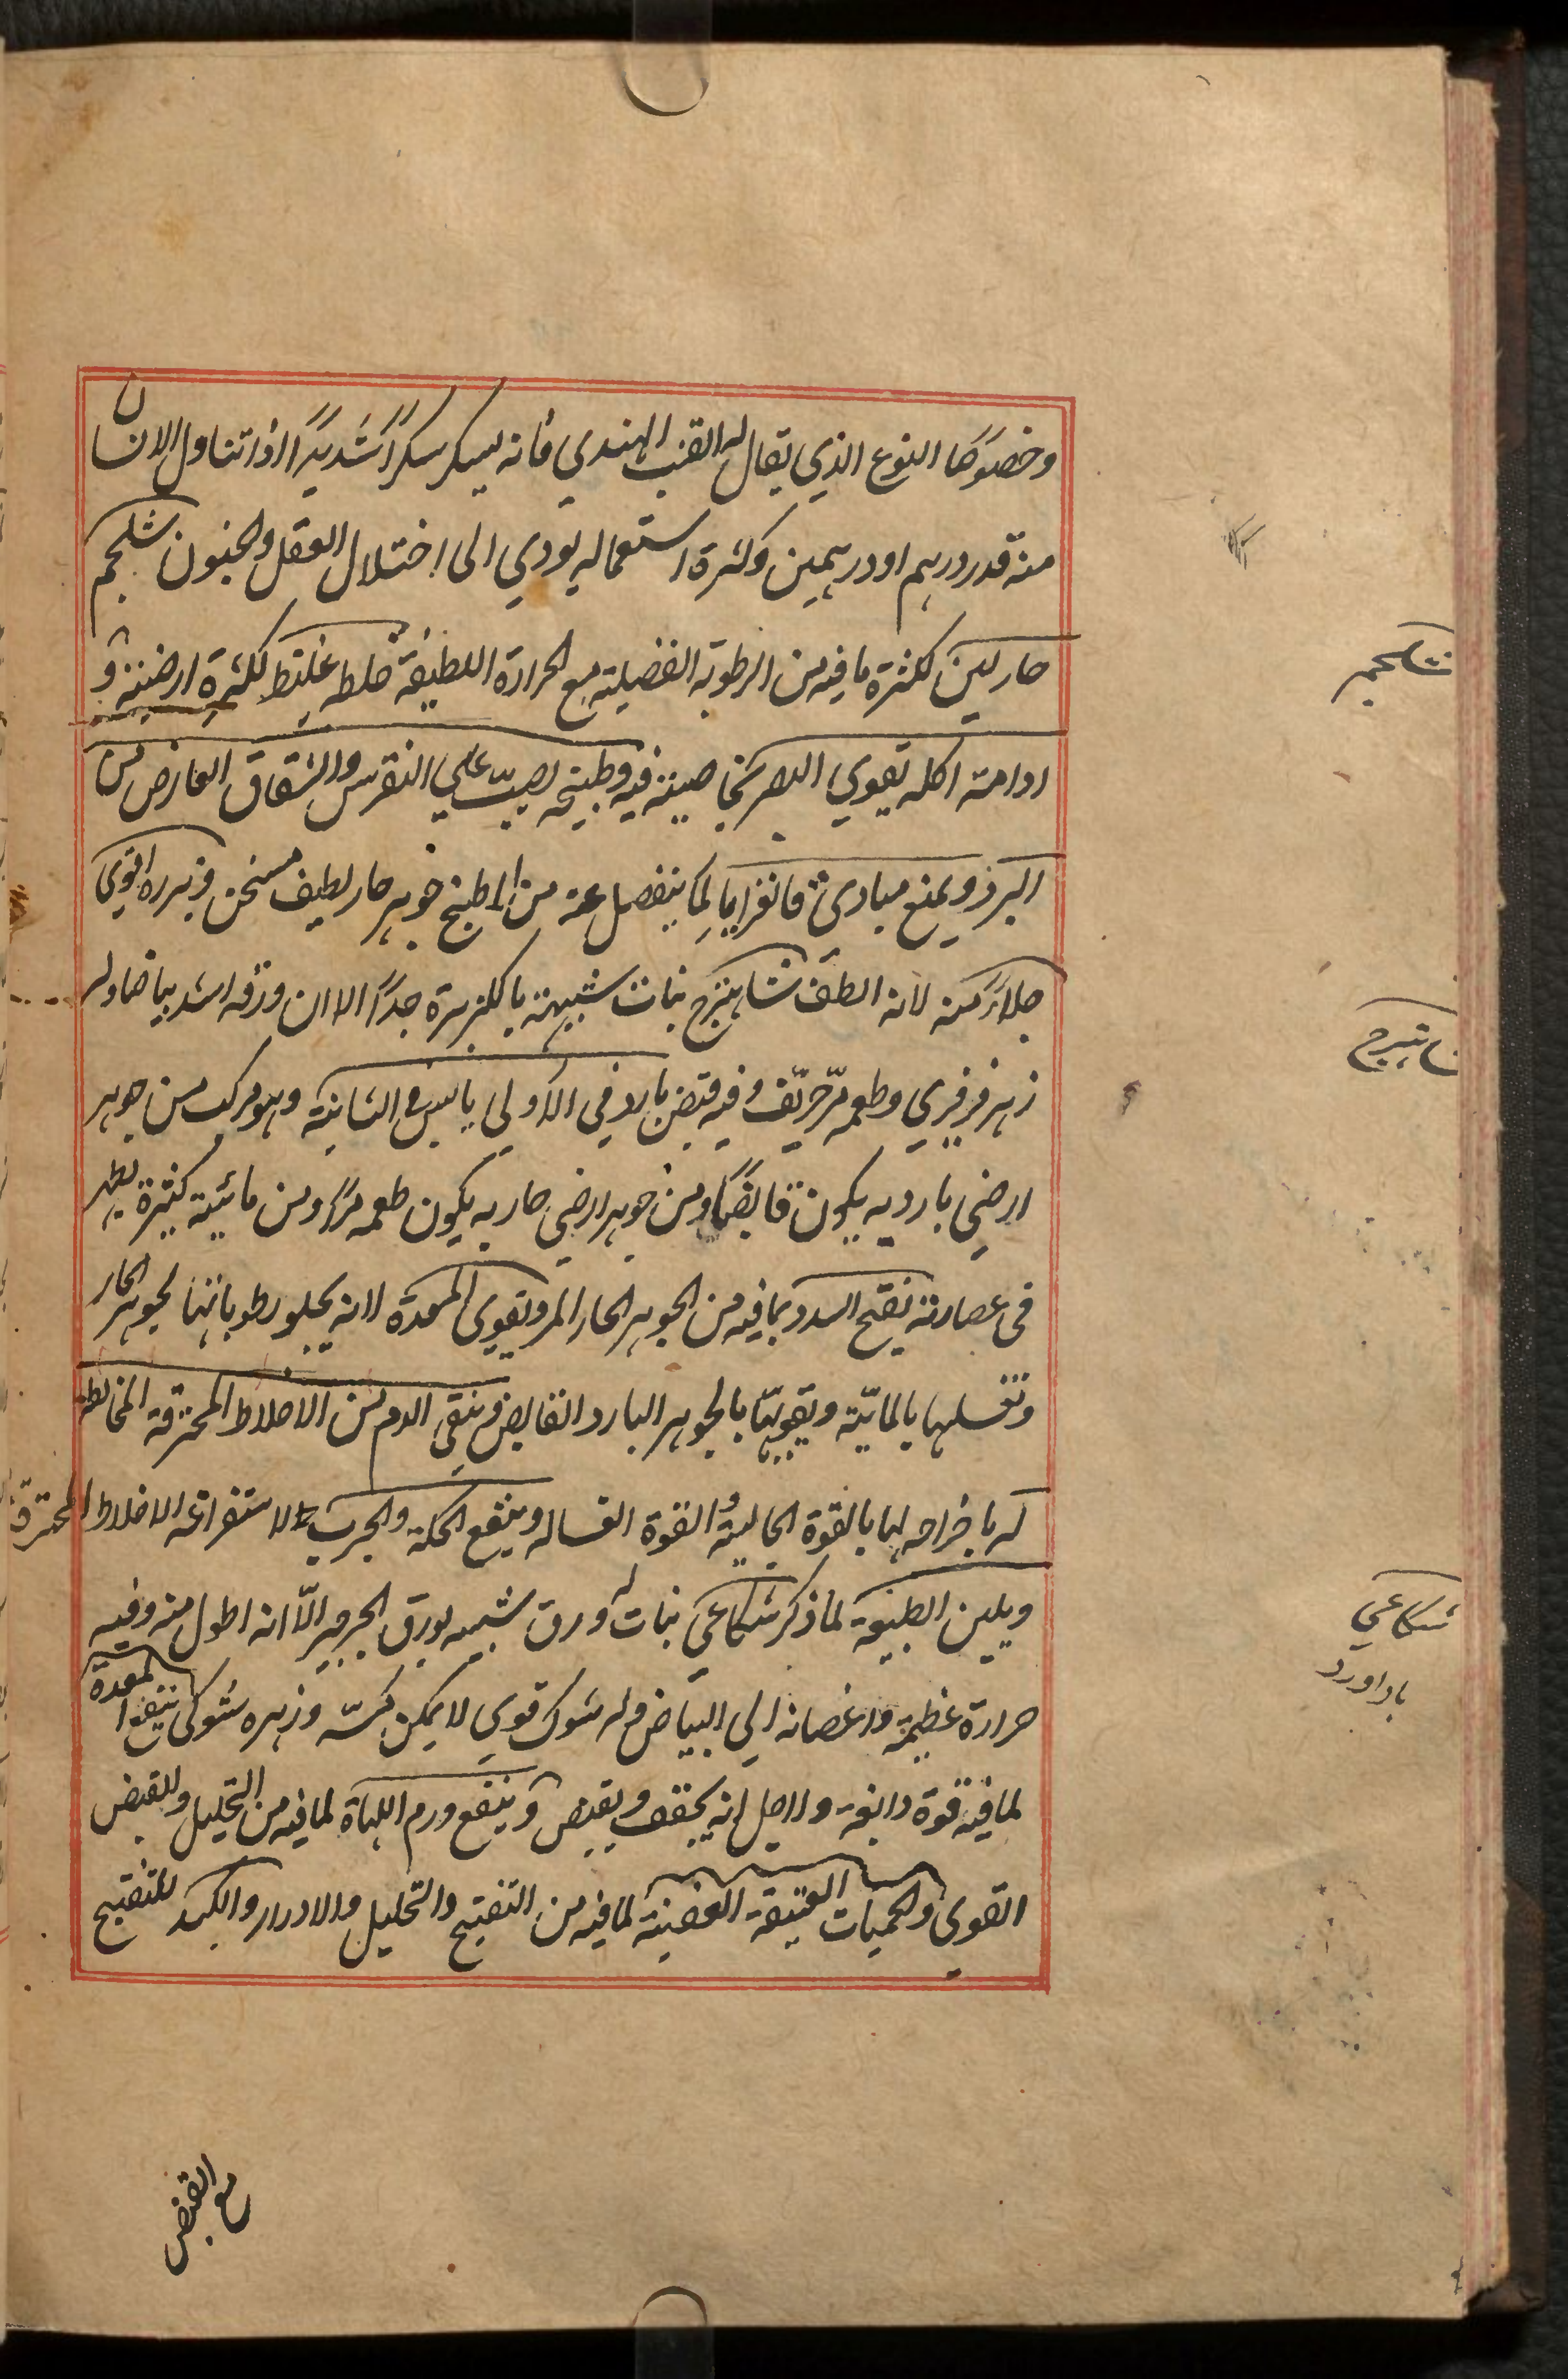 وخصوصا النوع الذي يقال له القنب الهندي فانه يسكر سكرا شديدا اذا تناول الانسان
منه قدر درهم او درهمين وكثرة استعماله يودي الى اختلال العقل والجنون شلجم
حار لين لكثرة ما فيه من الرطوبة الفضلية مع الحرارة اللطيفة خلطه غليظ لكثرة ارضيته و
ادامة اكله يقوي البصر بخاصية فيه وطبيخه يصب علي النقرس والشقاق العارض من
البرد ويمنع مبادئ قانغرايا لما ينفصل عنه من الطبخ جوهر حار لطيف مسخن وبزره اقوى
جلاءً منه لانه الطف شاهترج نبات شبيهة بالكزبرة جداً الا ان ورقه اشد بياضا وله
زهر فرفري وطعمه مرّ حرّيف وفيه قبض بارد في الاولي يابس في الثانية وهو مركب من جوهر
ارضي بارد به يكون قابضاً ومن جوهر ارضي حار به يكون طعمه مراً ومن مائية كثيرة يظهر
في عصارته يفتح السدد بما فيه من الجوهر الحار المر ويقوي المعدة لانه يجلو رطوباتها بجوهر الحار
وتغسلها بالمائيّة ويقويها بالجوهر البارد القابض وينقي الدم من الاخلاط المحترقة المخالطة
له باخراجه لها بالقوة الجالية والقوة الغسالة وينفع الحكة والجرب لاستفراغه الاخلاط المحترقة
ويلين الطبيعة لما ذكر شكاعي نبات له ورق شبيه بورق الجرجير الّا انه اطول منه وفيه
حرارة عظيمة واغصانه الي البياض وله شوك قوي لا يمكن مسّه وزهره شوكي ينفع المعدة
لما فيه قوة دابغة واصل انه يجفف ويقبض وينفع ورم اللهاة لما فيه من التحليل والقبض
القوي والحميات العتيقة العفنية لما فيه من التفتيح والتحليل والادرار والكبد للتفتيح
مع القبض
شلجم
شاهترج
شكاعي
باداورد